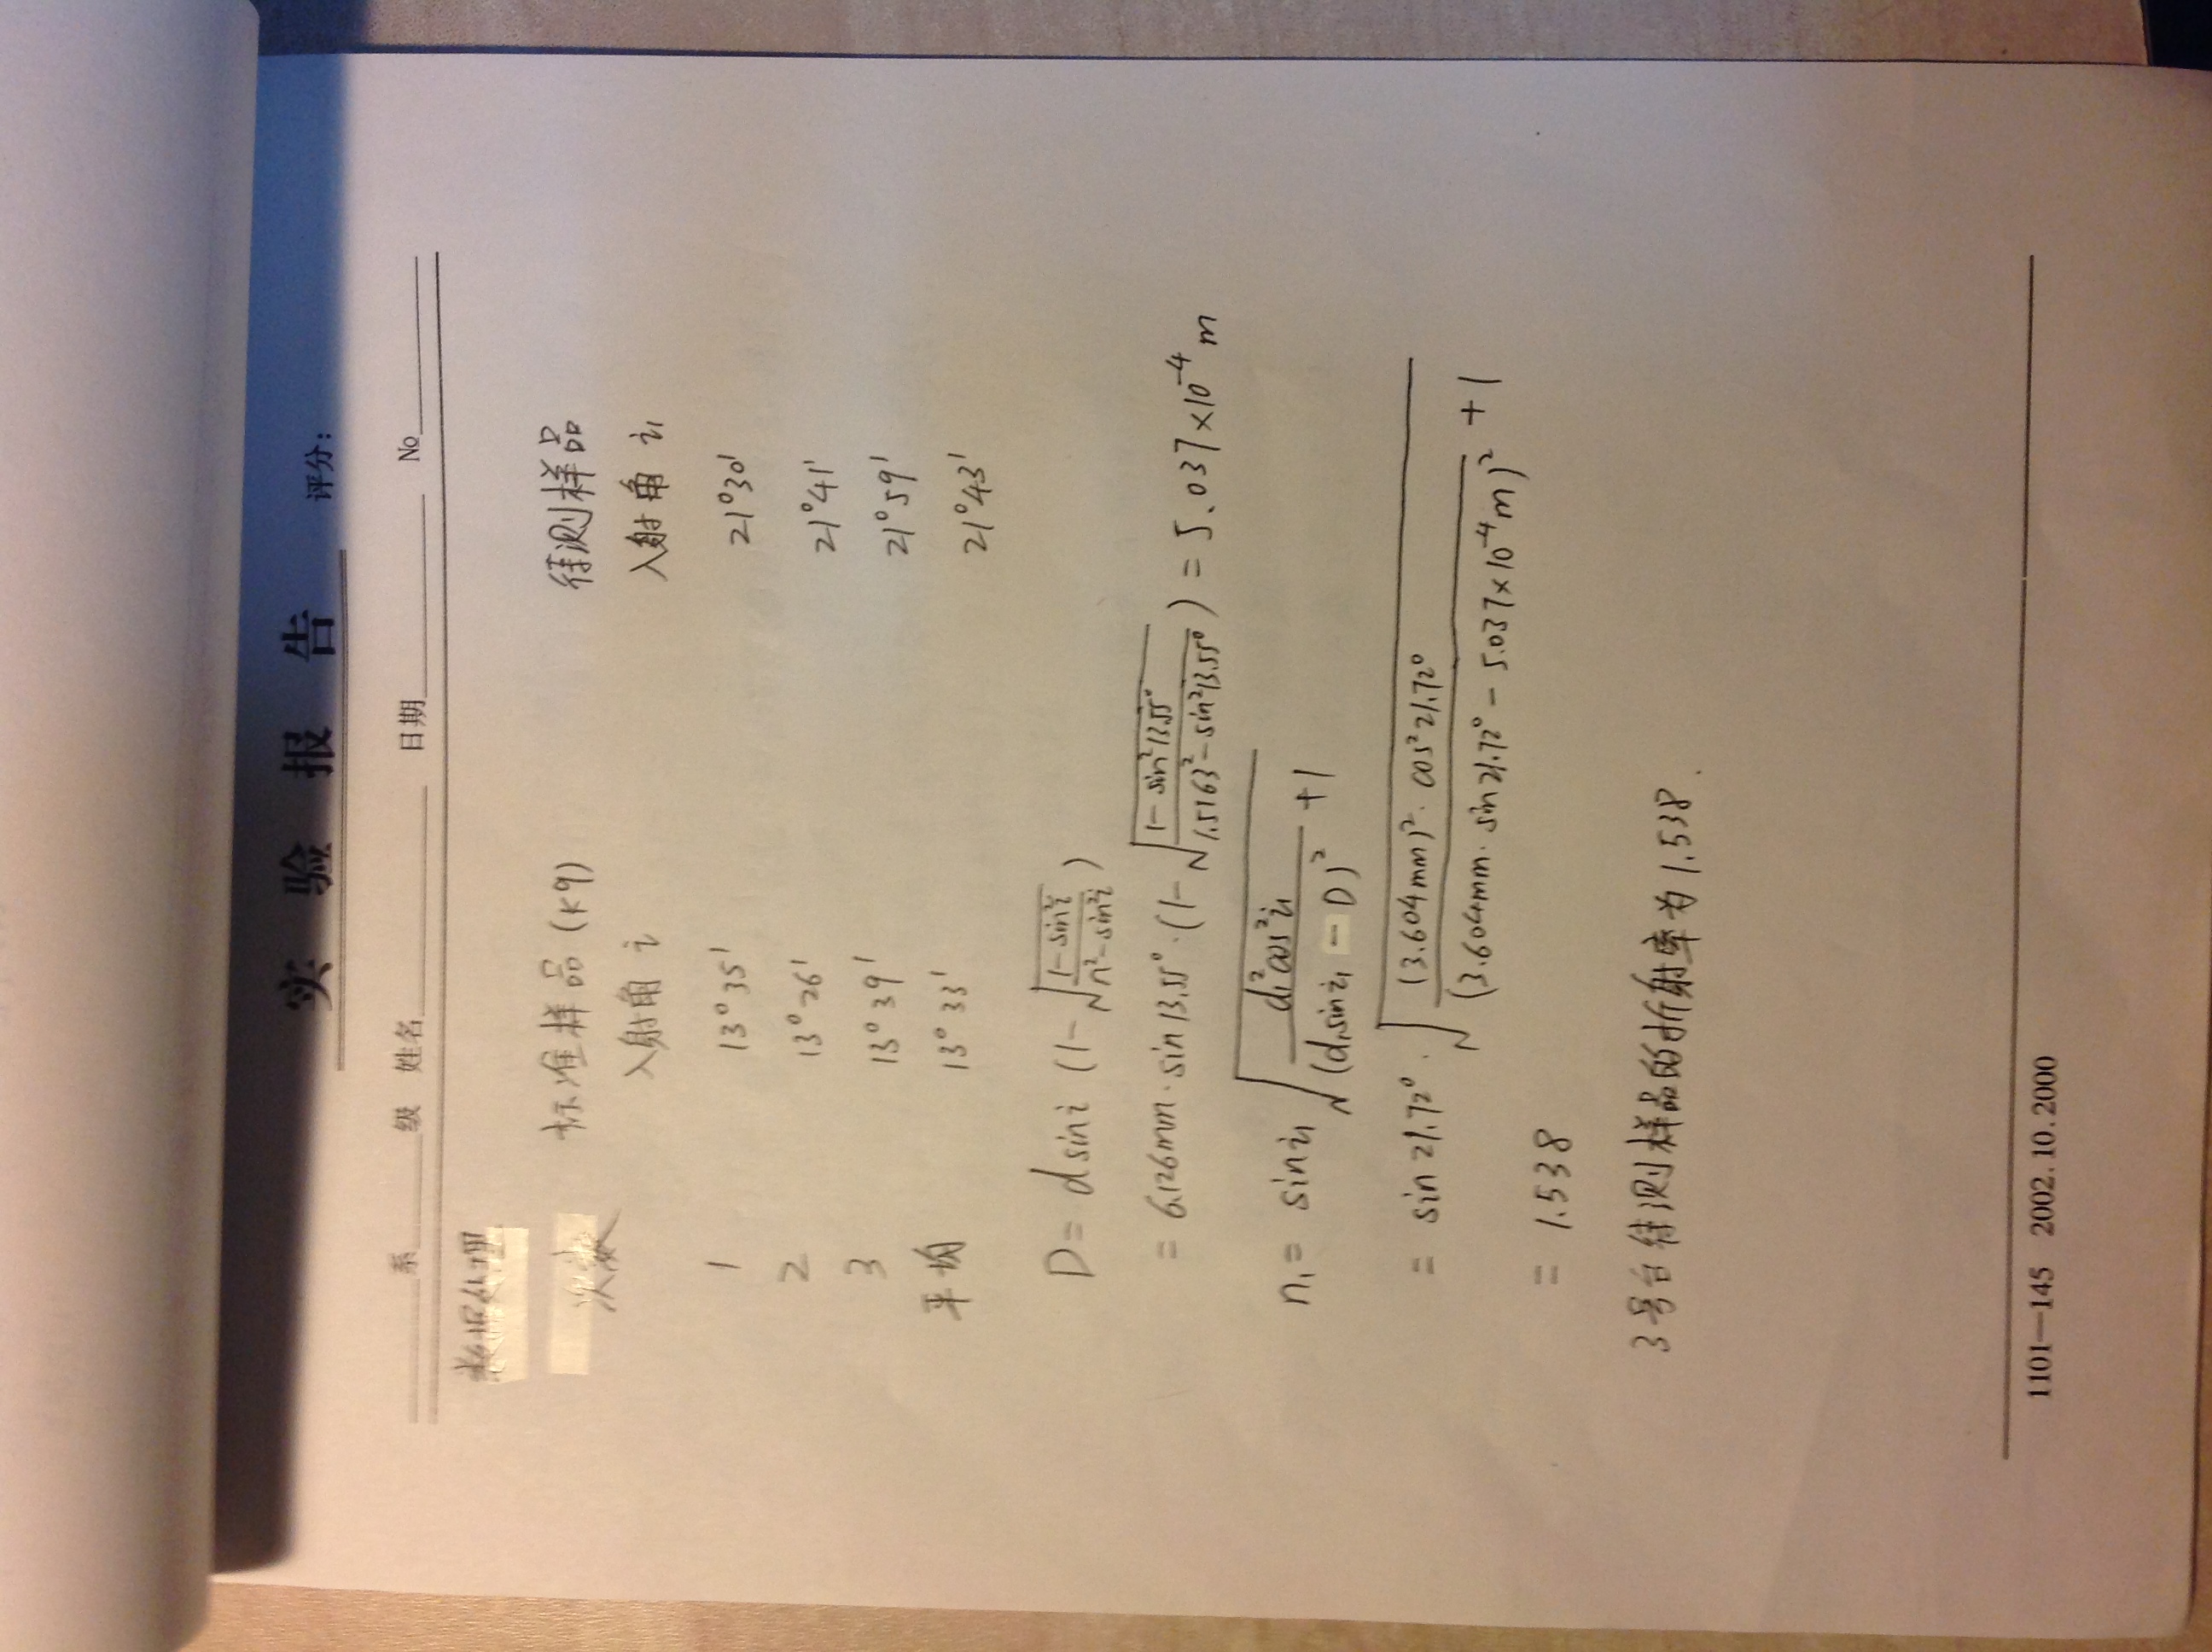 实验报告 评分:
系 级 姓名 日期 No
数据处理
次数 标准样品(K9) 待测样品
入射角 i 入射角 i₁
1 13°35′ 21°30′
2 13°26′ 21°41′
3 13°39′ 21°59′
平均 13°33′ 21°43′
D = d sin i (1-√((1-sin²i)/(n²-sin²i)))
= 6.126mm · sin 13.55° · (1-√((1-sin²13.55°)/(1.5163²-sin²13.55°))) = 5.037×10⁻⁴ m
n₁ = sin i₁ √((d₁²cos²i₁)/(d₁sin i₁ - D)² + 1)
= sin 21.72° · √(((3.604mm)² · cos²21.72°)/(3.604mm · sin 21.72° - 5.037×10⁻⁴ m)² + 1)
= 1.538
3号台待测样品的折射率为1.538.
1101—145 2002.10.2000